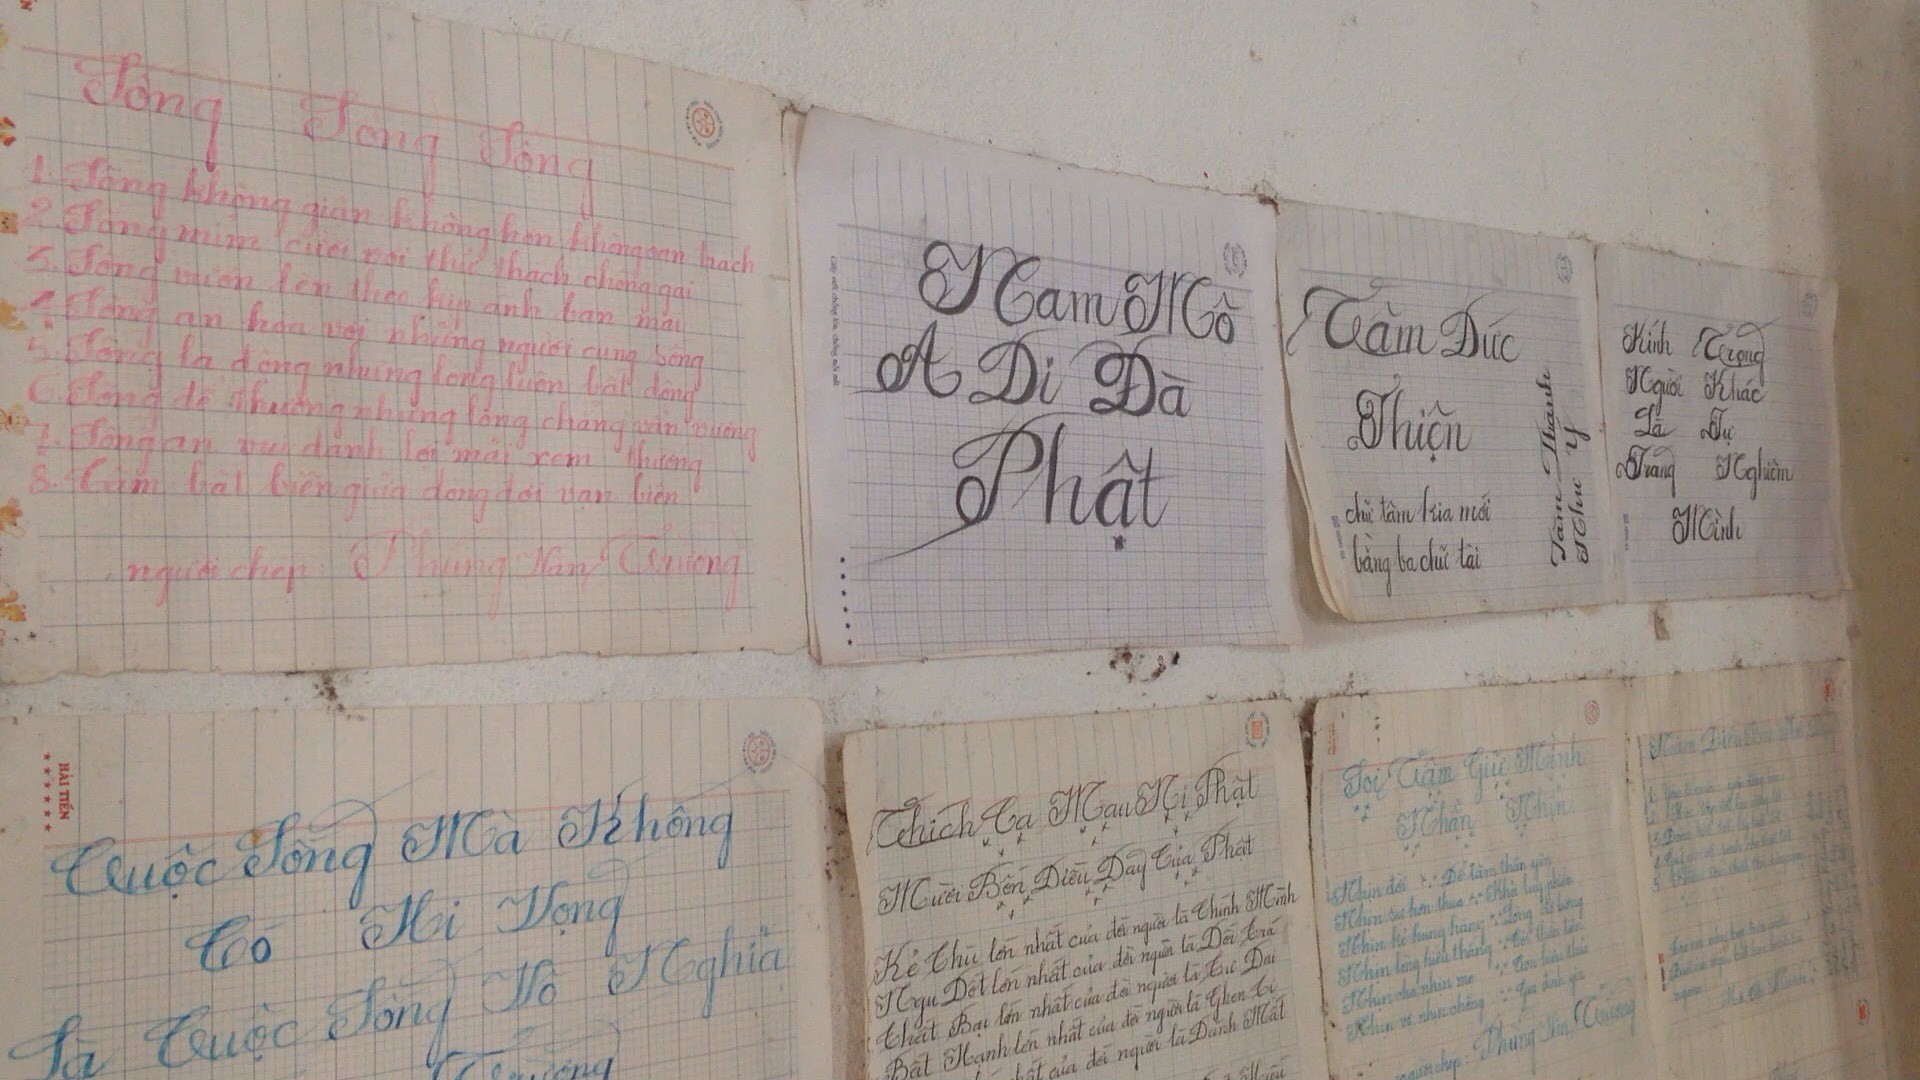 Sống Trong Sống
1. Sống không gian không hờn không oan trách
2. Sống mỉm cười với thử thách chông gai
3. Sống vươn lên theo kịp ánh ban mai
4. Sống an hòa với những người cùng sống
5. Sống là động nhưng lòng luôn bất động
6. Sống để thương nhưng lòng chẳng vấn vương
7. Sống an vui danh lợi mãi xem thường
8. Tâm bất biến giữa dòng đời vạn biến
người chép: Phùng Văn Trường
Nam Mô
A Di Đà
Phật
Tâm Đức
Thiện
chữ tâm kia mới
bằng ba chữ tài
Tâm Thành
Như Ý
Kính Trọng
Người Khác
Là Tự
Trang Nghiêm
Mình
HẢI TIẾN
Cuộc Sống Mà Không
Có Hi Vọng
Là Cuộc Sống Vô Nghĩa
Trường
Thích Ca Mau Ni Phật
Mười Bốn Điều Dạy Của Phật
Kẻ Thù lớn nhất của đời người là Chính Mình
Ngu Dốt lớn nhất của đời người là Dối Trá
Thất Bại lớn nhất của đời người là Tự Đại
Bất Hạnh lớn nhất của đời người là Ghen Tị
nhất của đời người là Đánh Mất
Soi Tâm Giữ Mình
Nhẫn Nhịn
Nhịn đời Để tâm thần yên
Nhịn sự hơn thua Khỏi lụy phiền
Nhịn kẻ hung hăng Lòng
Nhịn lòng hiếu thắng
Nhịn cha nhịn mẹ Con hiếu thảo
Nhịn vợ nhịn chồng Gia đình yên
người chép: Phùng Văn Trường